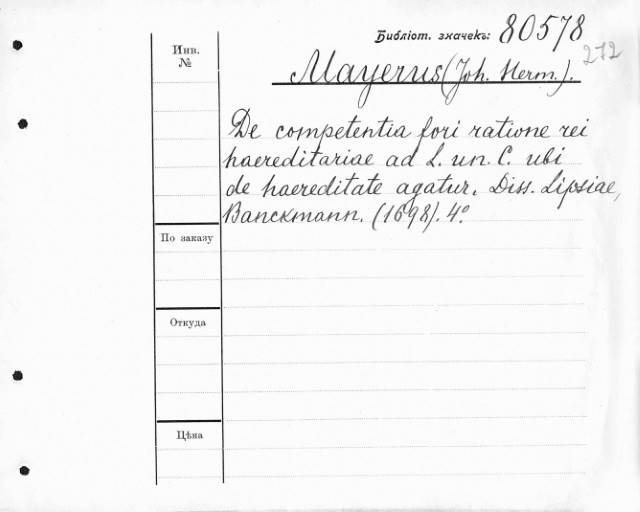 Библіот. значекъ: 80578
272
Инв.
№
Mayerus (Joh. Herm.).
De competentia fori ratione rei
haereditariae ad L. un. C. ubi
de haereditate agatur. Diss. Lipsiae,
Banckmann. (1698). 4°.
По заказу
Откуда
Цѣна